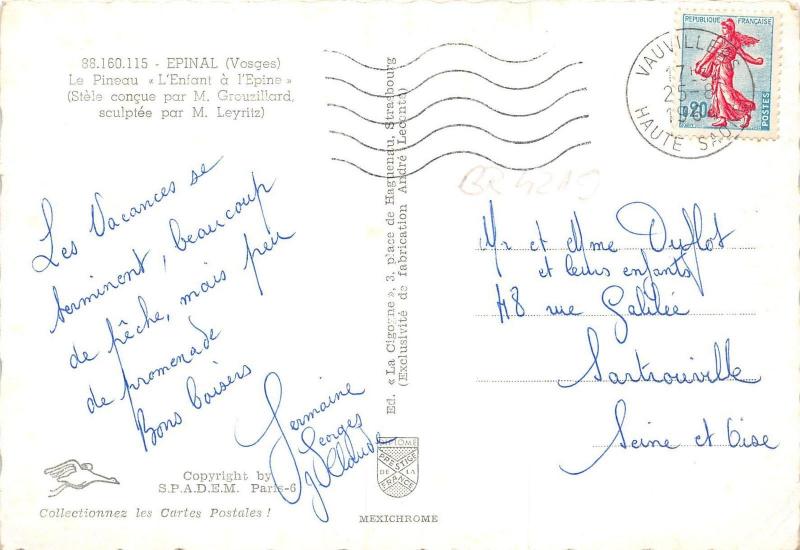 88.160.115 - EPINAL (Vosges)
Le Pineau « L'Enfant à l'Epine »
(Stèle conçue par M. Grouzillard,
sculptée par M. Leyritz)
Les Vacances se
terminent, beaucoup
de pêche, mais peu
de promenade
Bons baisers
Germaine
Georges
Claude
Copyright by
S.P.A.D.E.M. Paris-6
Collectionnez les Cartes Postales !
Ed. « La Cigogne », 3, place de Haguenau, Strasbourg
(Exclusivité de fabrication André Leconte)
DIPLOME
PRESTIGE
DE LA
FRANCE
MEXICHROME
REPUBLIQUE FRANÇAISE
0,20
POSTES
VAUVILLERS
25-8
HAUTE SAO
BR4219
Mr et Mme Duflot
et leurs enfants
48 rue Galilée
Sartrouville
Seine et Oise